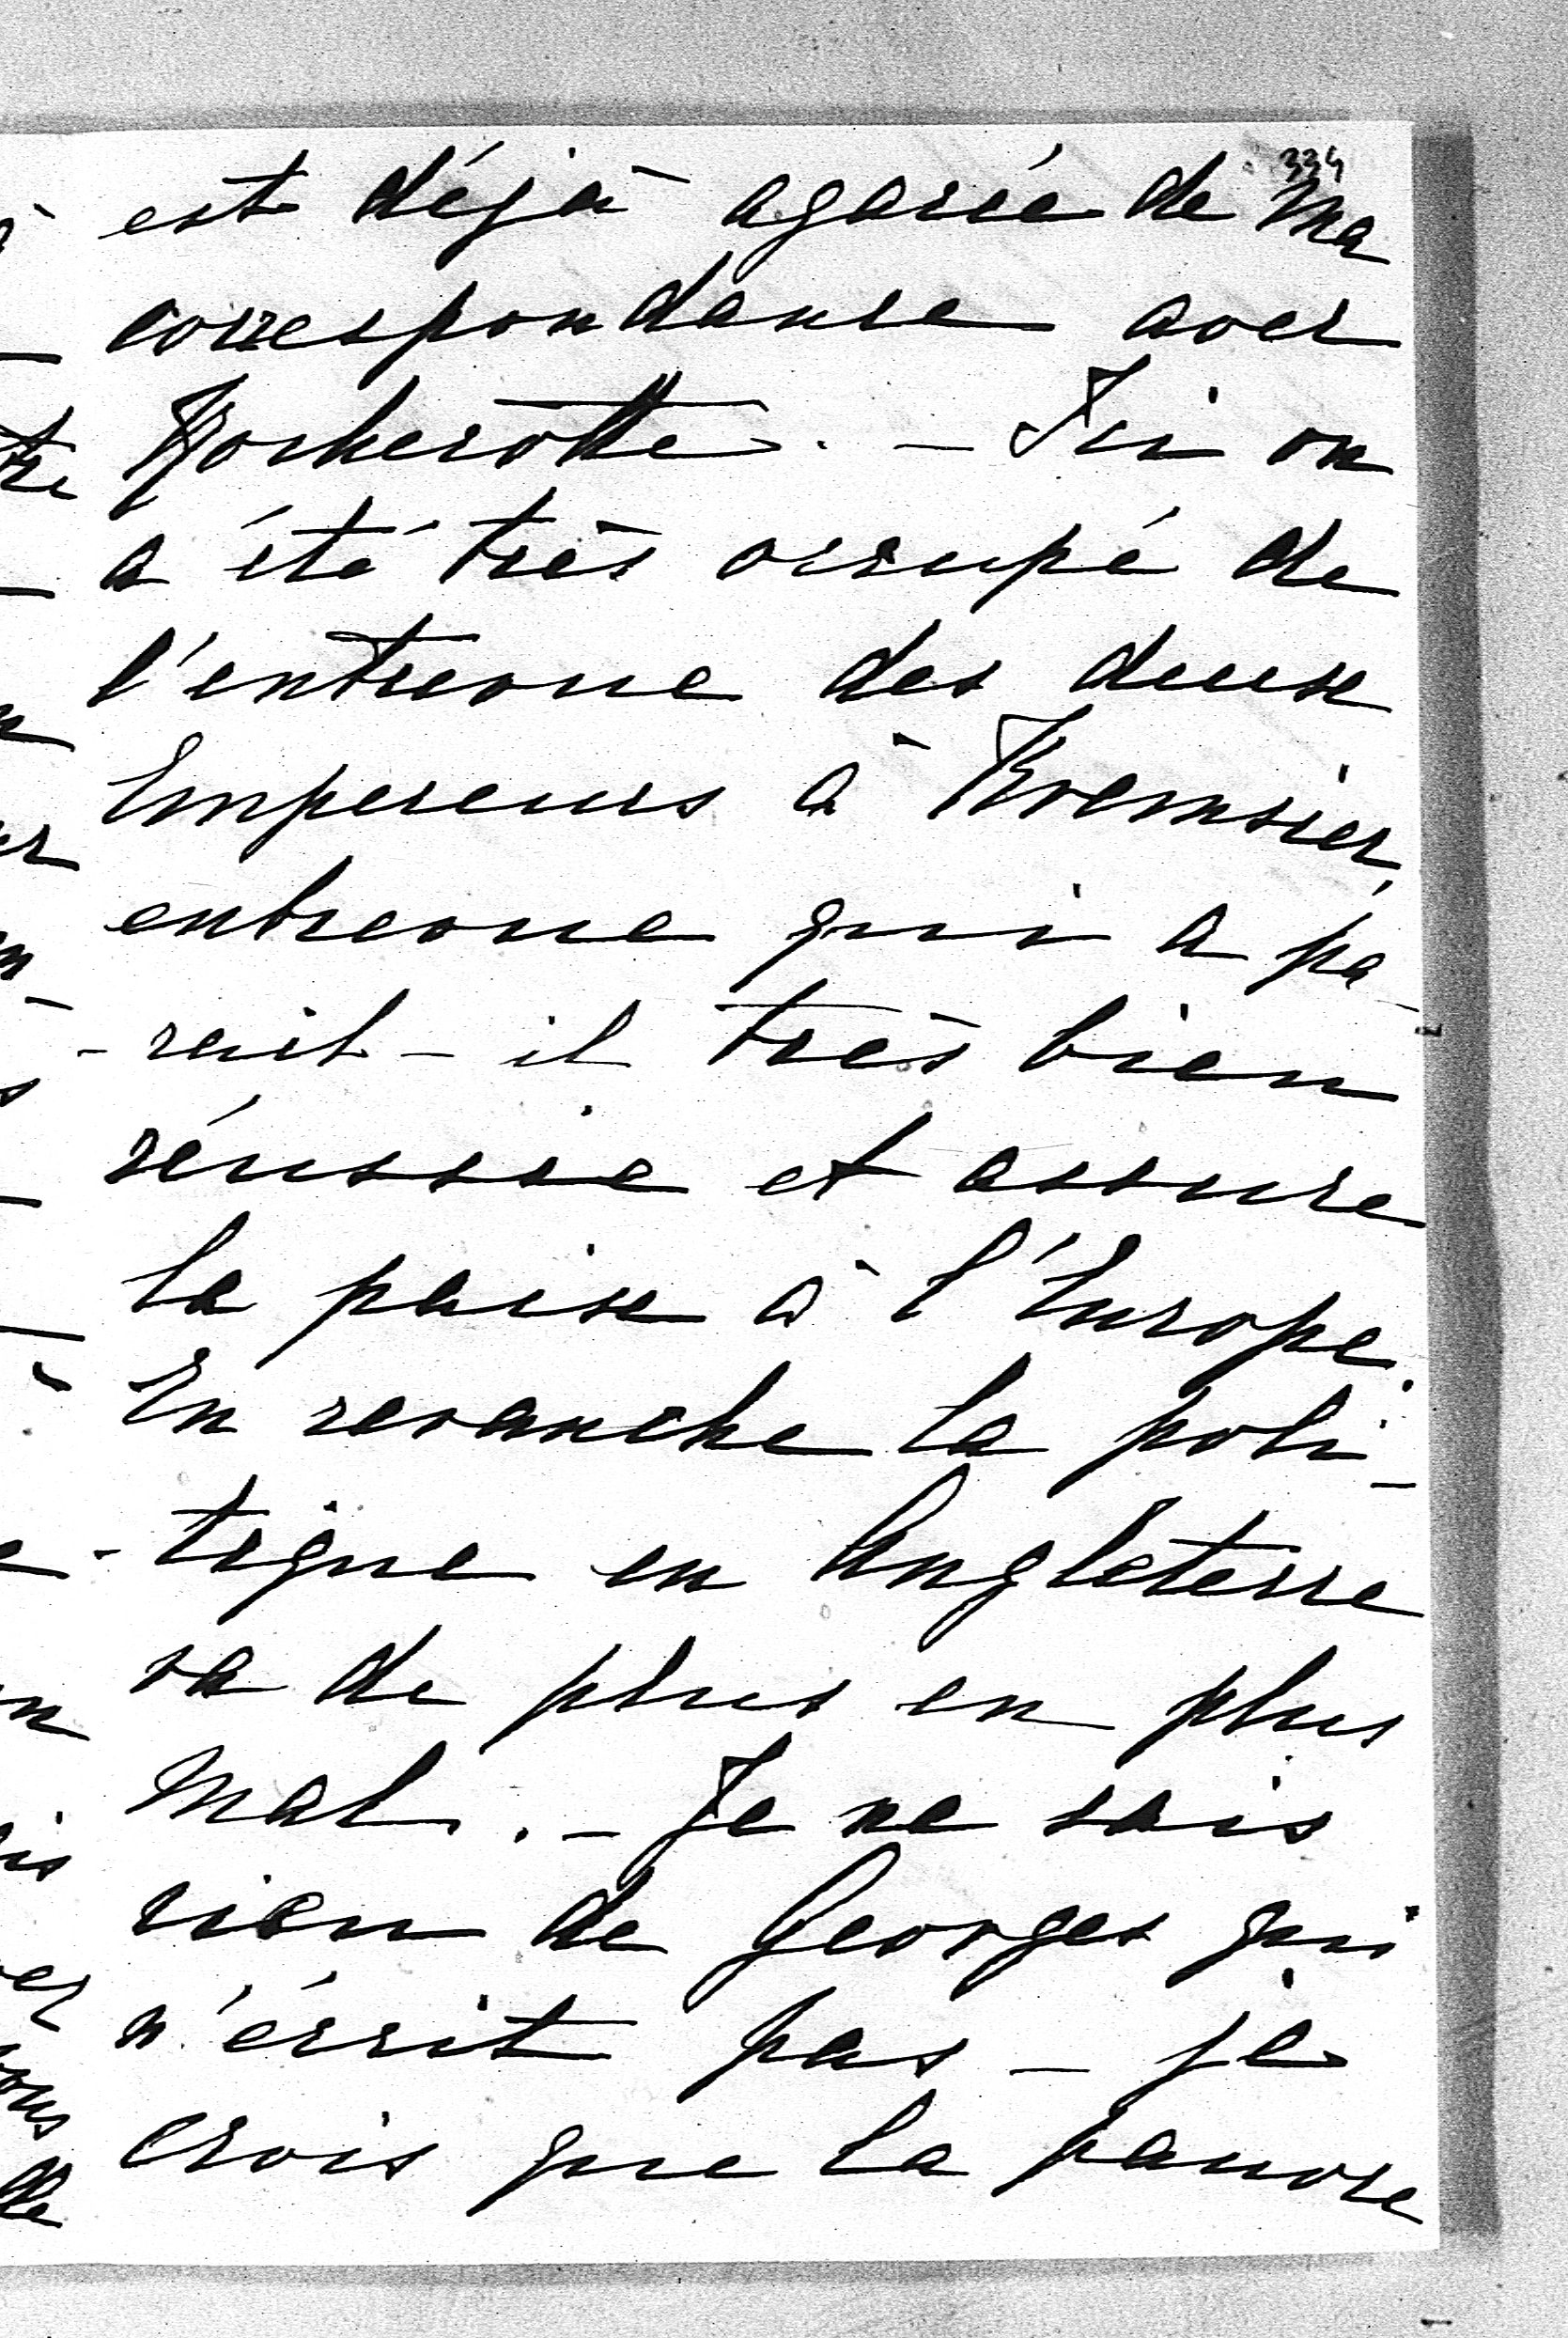 334
est déjà agacée de ma
correspondance avec
Kockerotte. – Ici on
a été très occupé de
l'entrevue des deux
Empereurs à Kremsier,
entrevue qui a pa-
-rait-il très bien
réussie et assure
la paix à l'Europe.
En revanche la poli-
-tique en Angleterre
va de plus en plus
mal. – Je ne sais
rien de Georges qui
n'écrit pas – je
crois que la pauvre